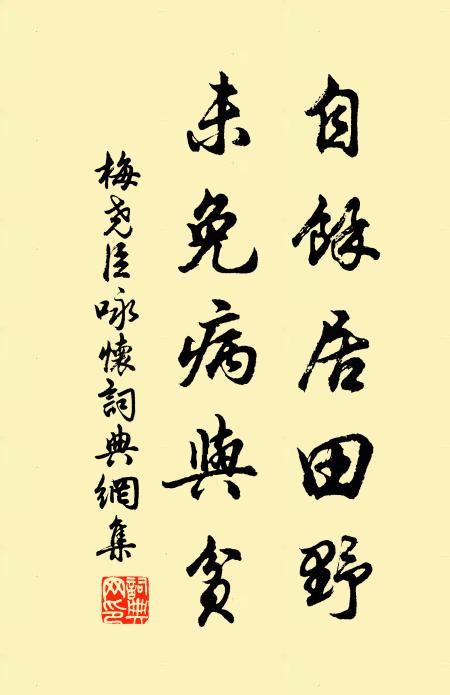 自餘居田野
未免病與貧
梅堯臣咏懷詞典網集
詞典網印